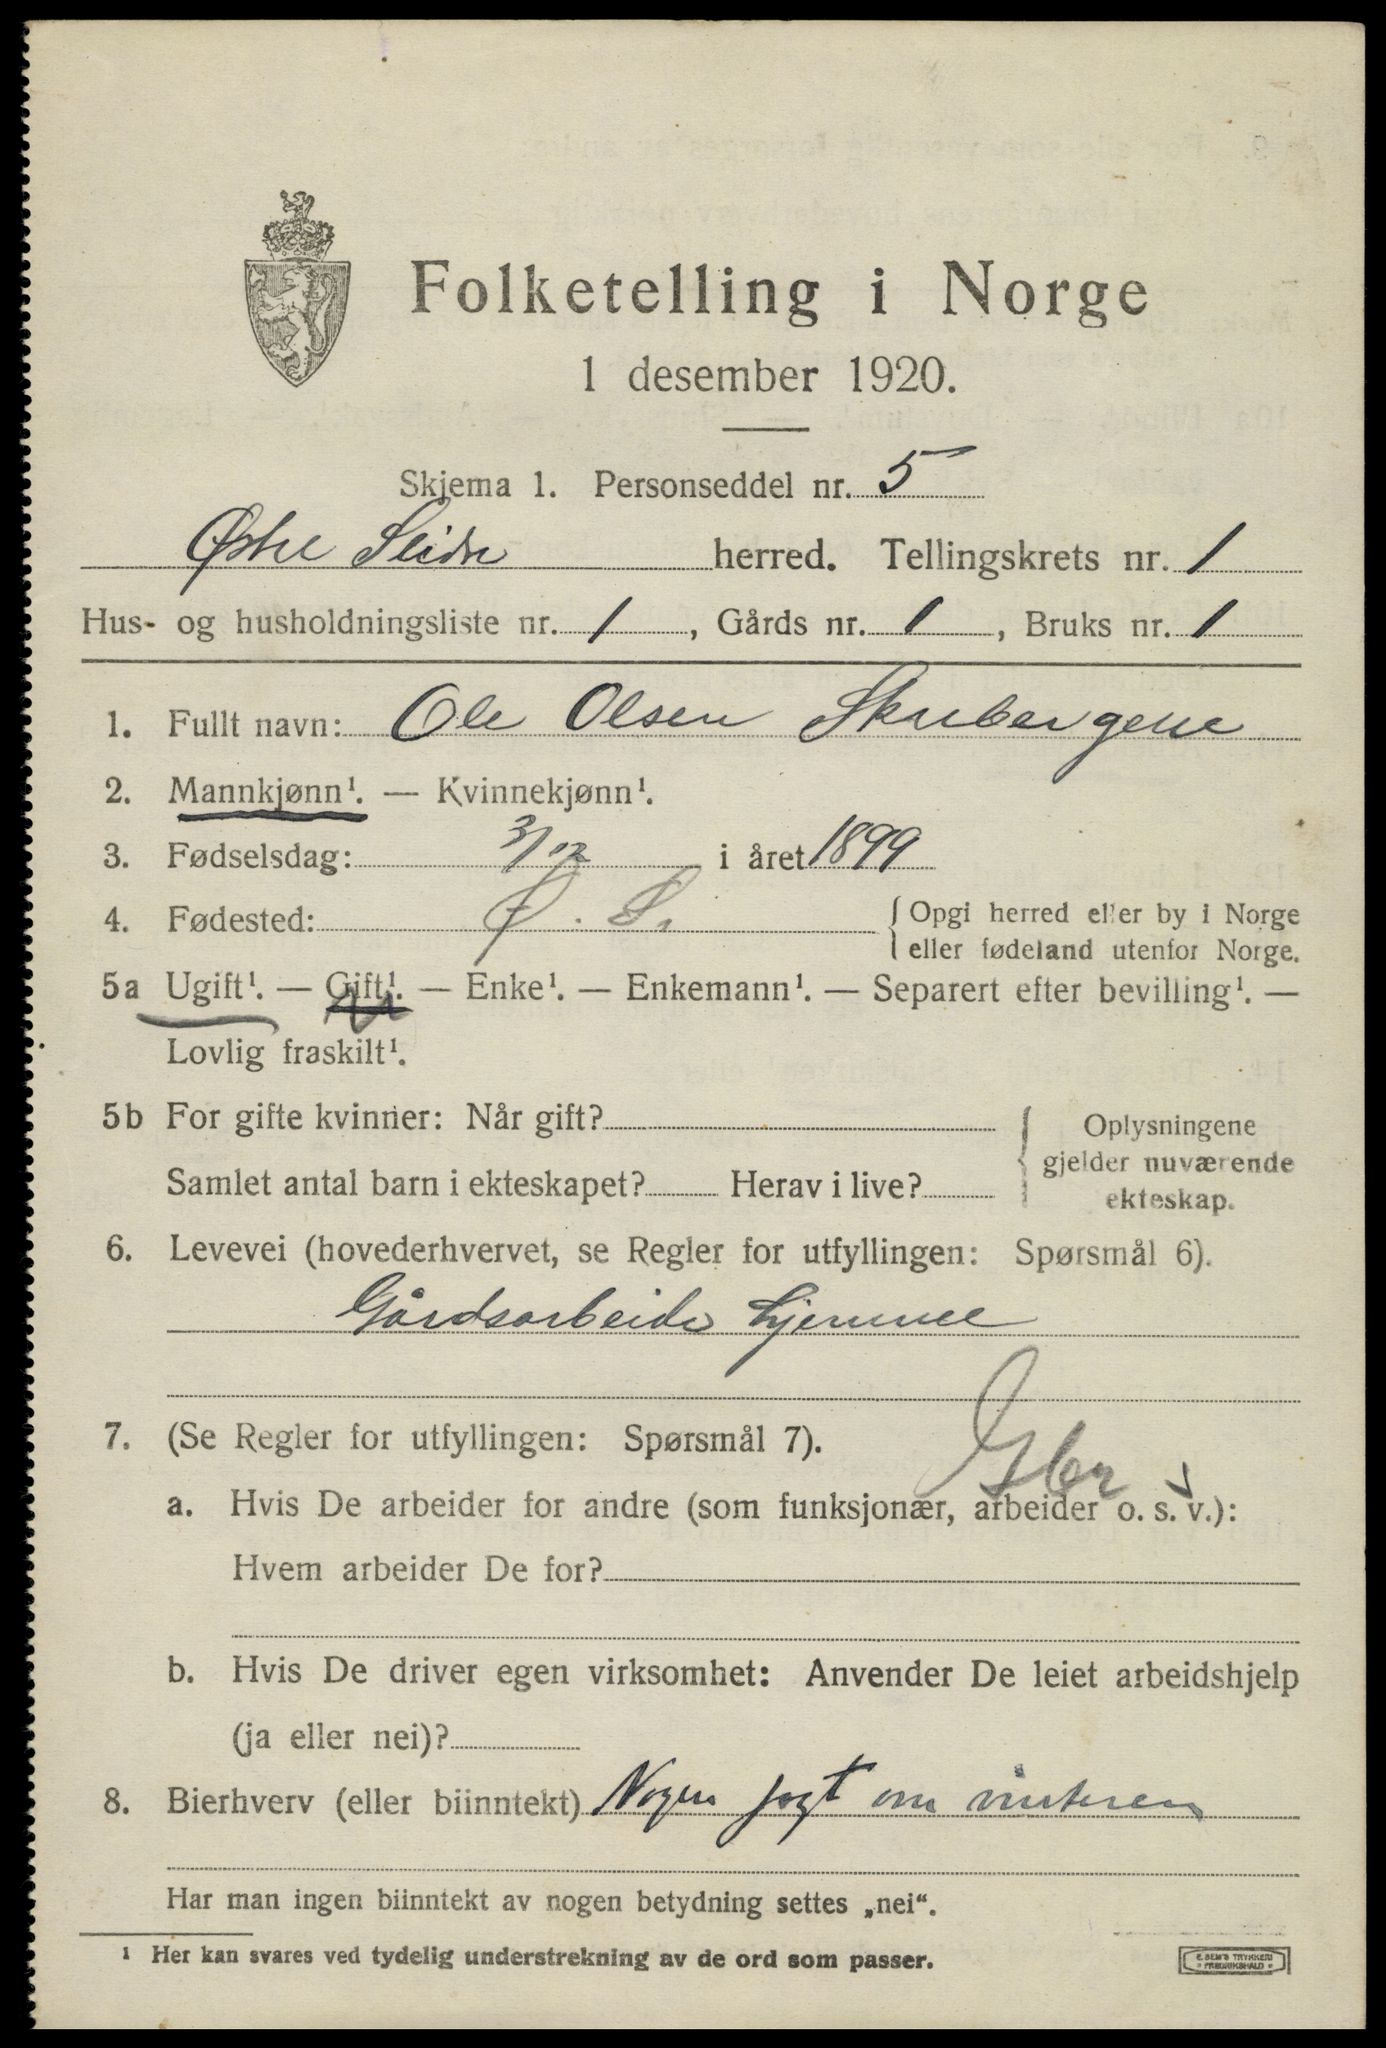 Folketelling i Norge
1 desember 1920.
Skjema 1. Personseddel nr. 5
Østre Slidre herred. Tellingskrets nr. 1
Hus- og husholdningsliste nr. 1, Gårds nr. 1, Bruks nr. 1
1. Fullt navn: Ole Olsen Skrebergene
2. Mannkjønn¹. — Kvinnekjønn¹.
3. Fødselsdag: 3/12 i året 1899
4. Fødested: Ø. S. { Opgi herred eller by i Norge
eller fødeland utenfor Norge.
5a Ugift¹. — Gift¹. — Enke¹. — Enkemann¹. — Separert efter bevilling¹. —
Lovlig fraskilt¹.
5b For gifte kvinner: Når gift? { Oplysningene
gjelder nuværende
Samlet antal barn i ekteskapet? Herav i live?
ekteskap.
6. Levevei (hovederhvervet, se Regler for utfyllingen: Spørsmål 6).
Gårdsarbeide hjemme
7. (Se Regler for utfyllingen: Spørsmål 7).
a. Hvis De arbeider for andre (som funksjonær, arbeider o. s. v.):
Hvem arbeider De for?
b. Hvis De driver egen virksomhet: Anvender De leiet arbeidshjelp
(ja eller nei)?
8. Bierhverv (eller biinntekt) Nogen jagt om vinteren
Har man ingen biinntekt av nogen betydning settes „nei“.
¹ Her kan svares ved tydelig understrekning av de ord som passer.
E. SEM'S TRYKKERI
FREDRIKSHALD